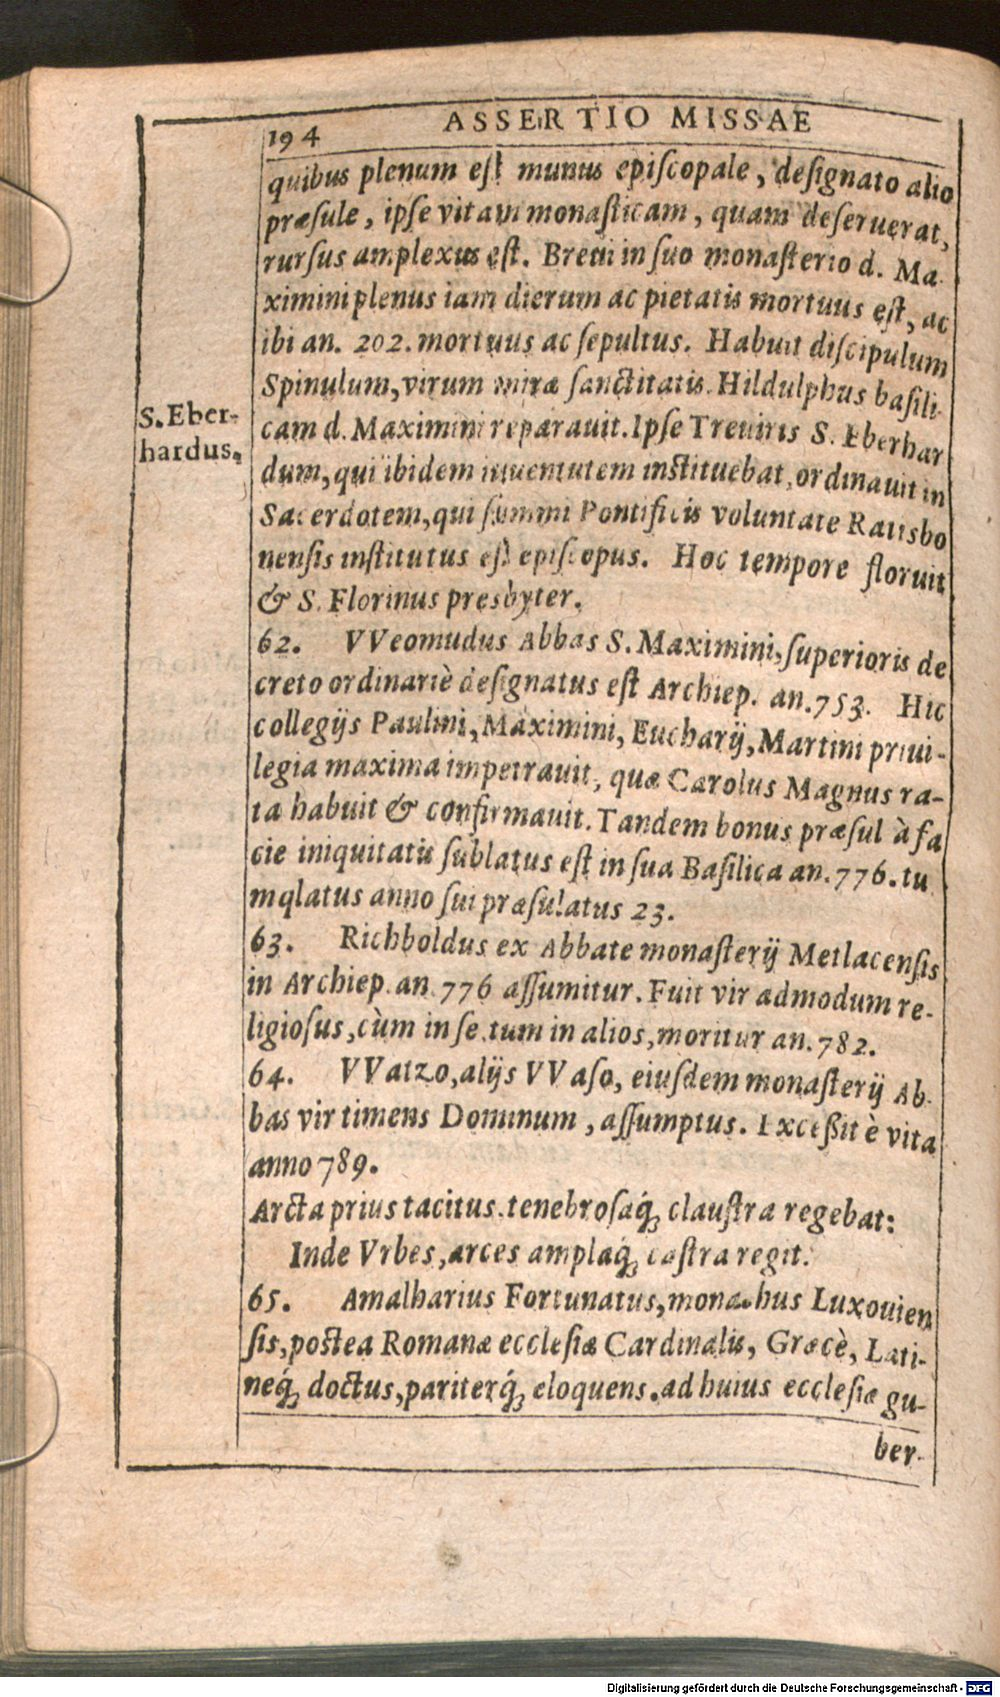 194
ASSERTIO MISSAE
quibus plenum est munus episcopale, designato alio
præsule, ipse vitam monasticam, quam deseruerat,
rursus amplexus est. Breui in suo monasterio d. Ma-
ximini plenus iam dierum ac pietatis mortuus est, ac
ibi an. 202. mortuus ac sepultus. Habuit discipulum
Spinulum, virum miræ sanctitatis. Hildulphus basili-
cam d. Maximini reparauit. Ipse Treuiris S. Eberhar
S. Eber-
hardus.
dum, qui ibidem iuuentutem instituebat, ordinauit in
Sacerdotem, qui summi Pontificis voluntate Ratisbo
nensis institutus est episcopus. Hoc tempore floruit
& S. Florinus presbyter.
62. VVeomudus Abbas S. Maximini, superioris de
creto ordinariè designatus est Archiep. an. 753. Hic
collegijs Paulini, Maximini, Eucharij, Martini priui-
legia maxima impetrauit, quæ Carolus Magnus ra-
ta habuit & confirmauit. Tandem bonus præsul à fa
cie iniquitatis sublatus est in sua Basilica an. 776. tu
mqlatus anno sui præsulatus 23.
63. Richboldus ex Abbate monasterij Metlacensis
in Archiep. an. 776 assumitur. Fuit vir admodum re-
ligiosus, cùm in se. tum in alios, moritur an. 782.
64. VVatzo, alijs VVaso, eiusdem monasterij Ab-
bas vir timens Dominum, assumptus. Excessit è vita
anno 789.
Arcta prius tacitus. tenebrosaq́; claustra regebat:
Inde Vrbes, arces amplaq́; castra regit.
65. Amalharius Fortunatus, monachus Luxouien
sis, postea Romanæ ecclesiæ Cardinalis, Græcè, Lati-
neq́; doctus, pariterq́; eloquens. ad huius ecclesiæ gu-
ber-
Digitalisierung gefördert durch die Deutsche Forschungsgemeinschaft - DFG